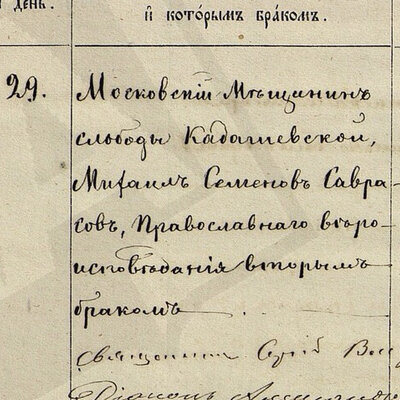 день.
и҆ кото́рымъ бра́комъ.
29.
Московскій Мѣщанинъ
слободы Кадашевской,
Михаилъ Семеновъ Савра-
совъ, Православнаго вѣро-
исповѣданія вторымъ
бракомъ
Священникъ Сергій
Діаконъ